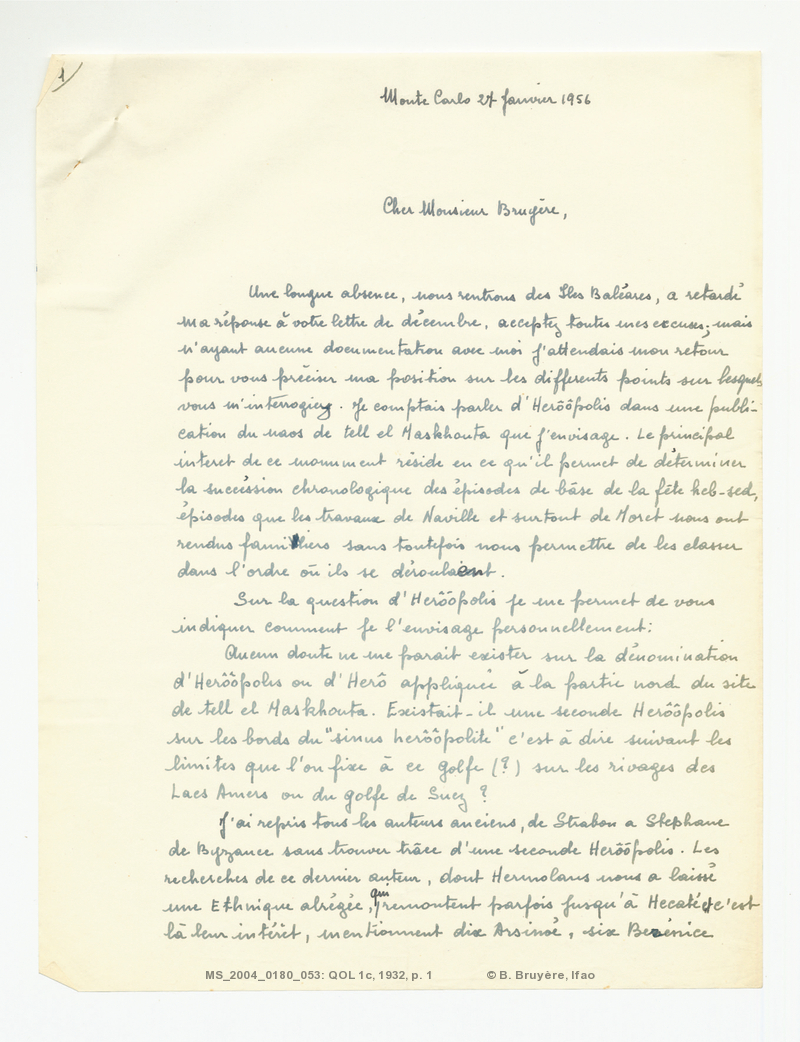 1
Monte Carlo 27 Janvier 1956
Cher Monsieur Bruyère,
Une longue absence, nous rentrons des Iles Baléares, a retardé
ma réponse à votre lettre de décembre, acceptez toutes mes excuses; mais
n'ayant aucune documentation avec moi j'attendais mon retour
pour vous préciser ma position sur les differents points sur lesquels
vous m'interrogiez. Je comptais parler d'Herôôpolis dans une publi-
cation du naos de tell el Maskhouta que j'envisage. Le principal
interet de ce monument réside en ce qu'il permet de déterminer
la succession chronologique des épisodes de bâse de la fête heb-sed,
épisodes que les travaux de Naville et surtout de Moret nous ont
rendus familiers sans toutefois nous permettre de les classer
dans l'ordre où ils se déroulaient.
Sur la question d'Herôôpolis je me permet de vous
indiquer comment je l'envisage personnellement:
Aucun doute ne me parait exister sur la dénomination
d'Herôôpolis ou d'Herô appliquée à la partie nord du site
de tell el Maskhouta. Existait-il une seconde Herôôpolis
sur les bords du "sinus herôôpolite" c'est à dire suivant les
limites que l'on fixe à ce golfe (?) sur les rivages des
Lacs Amers ou du golfe de Suez ?
J'ai repris tous les auteurs anciens, de Strabon a Stephane
de Byzance sans trouver trâce d'une seconde Herôôpolis. Les
recherches de ce dernier auteur, dont Hermolaus nous a laissé
une Ethnique abrégée, qui remontent parfois jusqu'à Hecatée c'est
là leur intérêt, mentionnent dix Arsinoé, six Berénice
MS_2004_0180_053: QOL 1c, 1932, p. 1 © B. Bruyère, Ifao